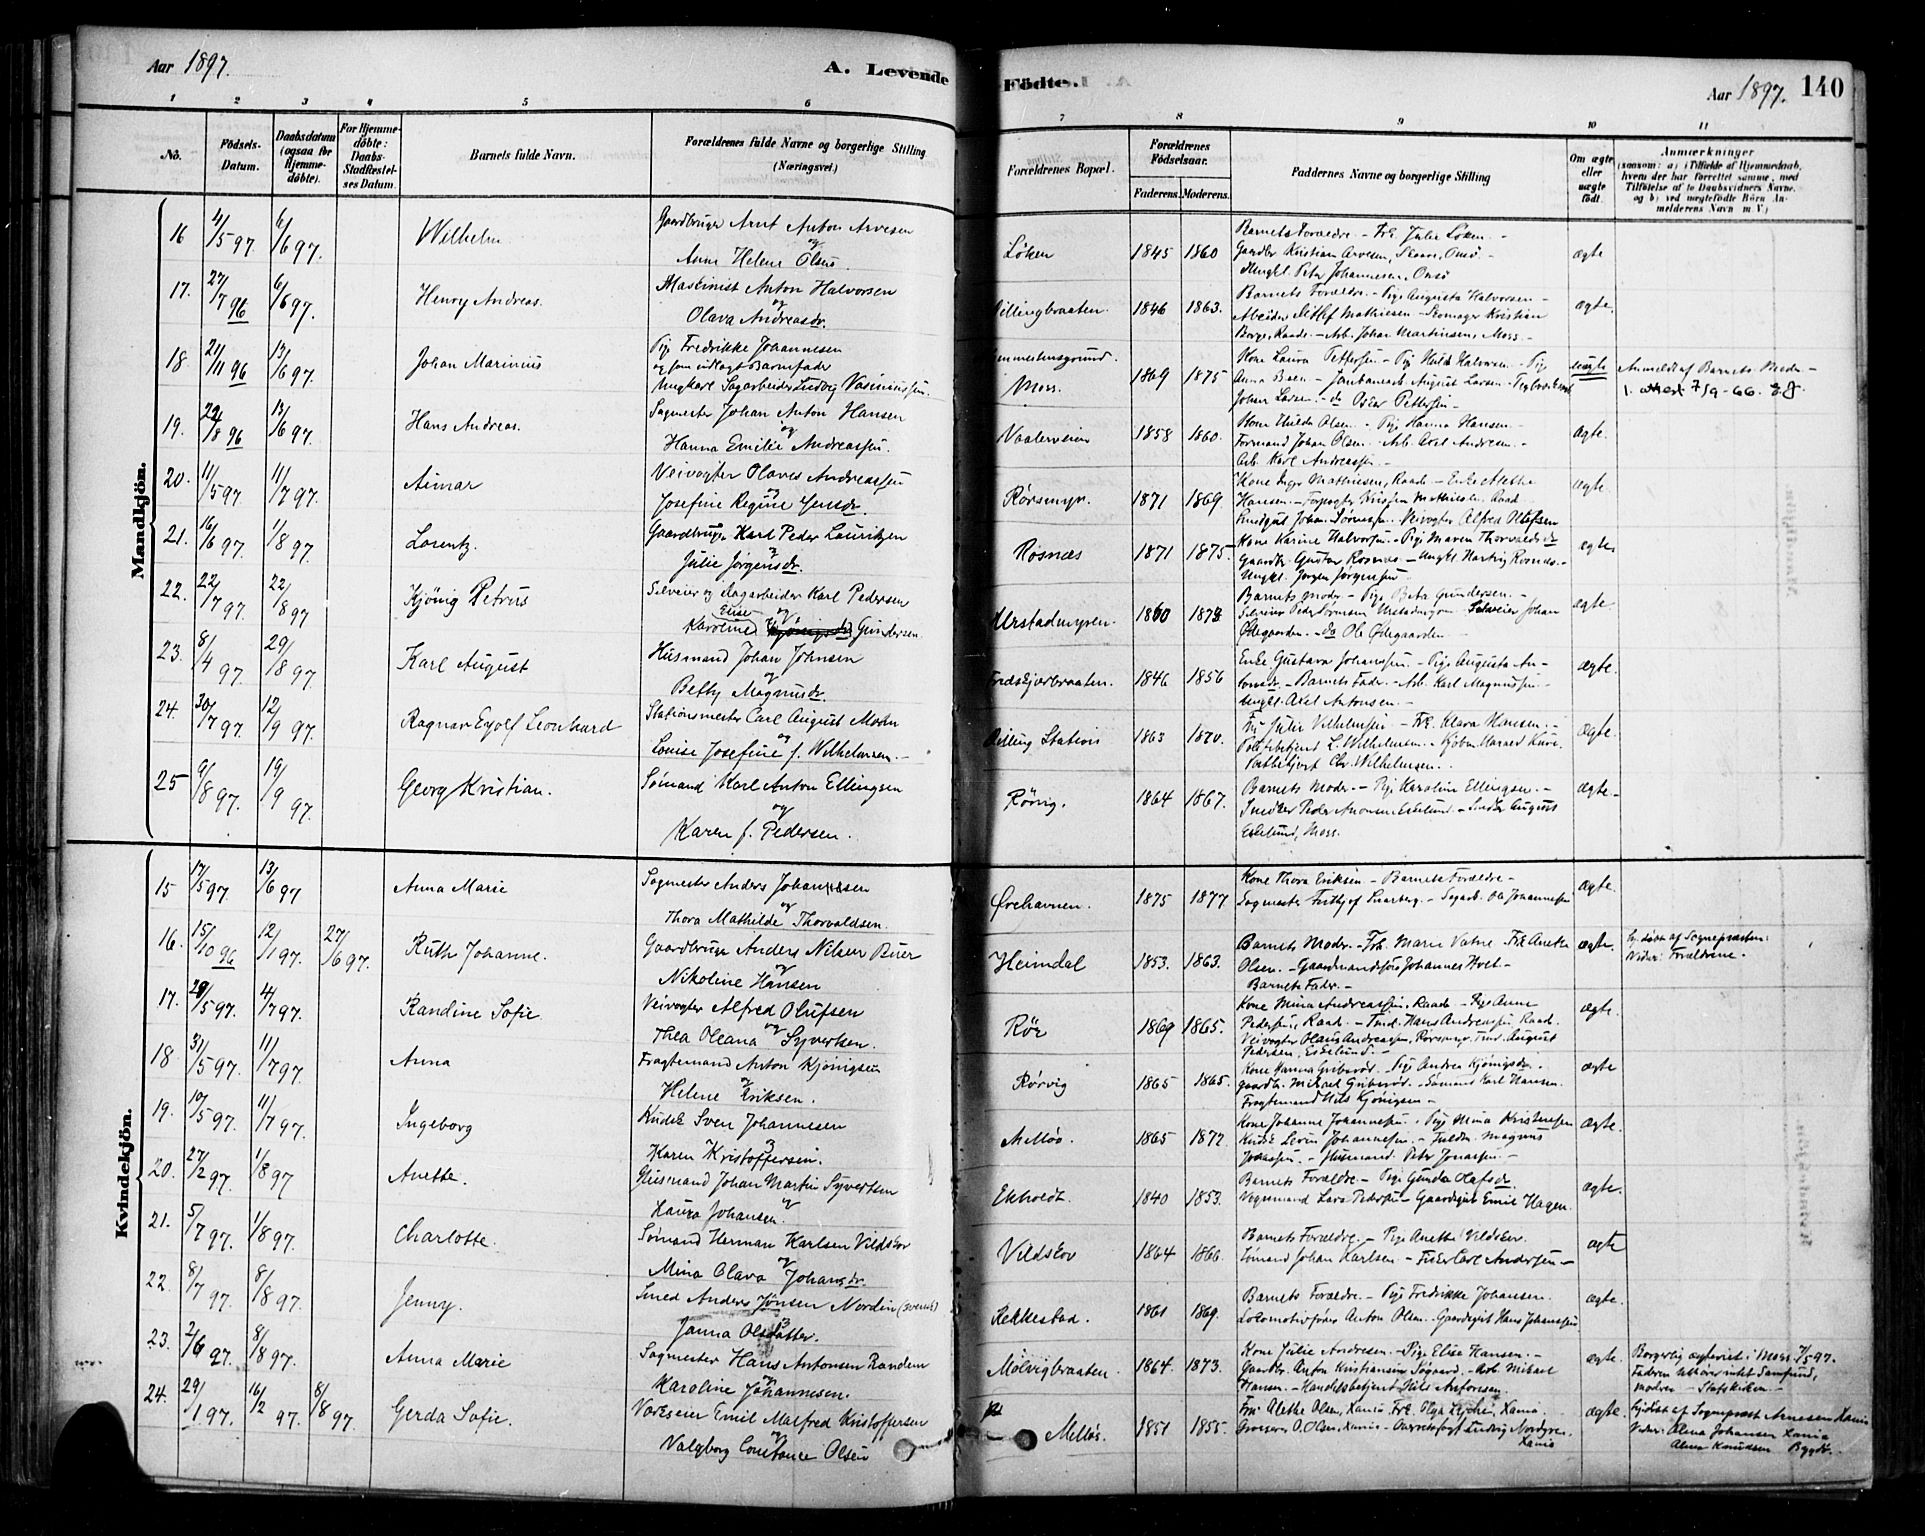 Aar 1897.
A. Levende
Födte.
Aar 1897.
140
1 2 3 4 5 6
7 8 9 10 11
No.
Födsels-
Datum.
Daabsdatum
(ogsaa for
Hjemme-
döbte).
For Hjemme-
döbte:
Daabs-
Stadfæstel-
ses Datum.
Barnets fulde Navn.
Forældrenes fulde Navne og borgerlige Stilling
(Næringsvei.)
Forældrenes Bopæl.
Forældrenes
Födselsaar.
Faderens.
Moderens.
Faddernes Navne og borgerlige Stilling
Om ægte
eller
uægte
födt.
Anmærkninger
(saasom: a) i Tilfælde af Hjemmedaab,
hvem der har forrettet samme, med
Tilföielse af to Daabsvidners Navne,
og b) ved uægtefödte Börn An-
melderens Navn m. V.)
Mandkjön.
16 4/5 97. 6/6 97. Wilhelm.
Gaardbruger Arnt Anton Arvesen
og
Anne Helene Olsen.
Løken 1845 1860
Barnets Forældre. – Frk. Julie Løken. –
Gaardbr. Kristian Arvesen, Onsö. –
Ungkl. Peter Johannesen, Onsö
ægte
17. 27/7 96 6/6 97. Henry Andreas.
Maskinist Anton Halvorsen
og
Olava Andreasdr.
1846 1863.
Barnets Forældre. – Pige Augusta Halvorsen –
Arbeider Mathiesen – Skomager Kristian
Borge, Raade. – Arb. Johan Martinsen, Moss. –
ægte.
18. 21/11 96 13/6 97. Johan Marinius
Pige Fredrikke Johannesen
og som udlagt Barnefader
Ungkarl Sagarbeider Ludvig
Moss. 1869 1875
Kone Laura Pettersen – Pige Hulda Halvorsen – Pige
Anna Boen – August Larsen –
Johan Larsen. – do Oscar Pettersen –
uægte
Anmeldt af Barnets Moder –
7/9-66.
19. 29/8 96 13/6 97. Hans Andreas.
Sagmester Johan Anton Hansen
og
Hanna Emilie Andreassen.
Vaalerveien 1858 1860.
Kone Hulda Olsen. – Pige Hanna Hansen –
Formand Johan Olsen – Arb. Axel Andresen. –
Arb. Karl Andreassen –
Ægte.
20. 11/5 97. 11/7 97. Aimar
Veivogter Olaves Andreassen
og
Josefine Regine Jensdr.
Rørsmyr. 1871 1869.
Kone Inger Mathiesen, Raade – Enke Alethe
Hansen – Mathiesen, Raade
Johan Sørensen. Veivogter Alfred Olufsen
Ægte.
21. 16/6 97. 1/8 97. Lorentz.
Gaardbruger Karl Peder Lauritzen
og
Julie Jørgensdr.
Røsnæs 1871 1875.
Kone Karine Halvorsen. – Pige Maren Thorvaldsdr
Gaardbr. Gustav Rosnæs – Ungkl. Hartvig Rosnæs. –
Ungkl. Jørgen Jørgensen
ægte
22. 22/7 97. 22/8 97 Kjönig Petrus
og Dagarbeider Karl Pedersen
Elise og
Karoline Gundersen.
Urstadmyren. 1860 1873
Barnets Moder – Pige Beta Gundersen. –
Peder Sørensen Urstadmyren Johan
Ødegaarden. – do Ole Ødegaarden –
ægte.
23. 8/4 97. 29/8 97. Karl August
Husmand Johan Johnsen
og
Betty Magnusdr.
1846 1856
Enke Gustava Johansen. – Pige Augusta An-
tonsdr. – Barnets Fader – Arb. Karl Magnussen –
Ungkl. Axel Antonsen. –
ægte.
24. 30/7 97. 12/9 97. Ragnar Eyolf Leonhard
Stationsmester Carl August Moen
og
Louise Josefine f. Wilhelmsen –
Dilling Station 1863 1870.
Fru Julie Vilhelmsen – Frk. Klara Hansen. –
Politibetjent L. Wilhelmsen. – Kjöbm. Harald
Postbetjent Chr. Wilhelmsen.
Ægte.
25 9/8 97. 19/9 97. Georg Kristian.
Sømand Karl Anton Ellingsen
og
Karen f. Pedersen.
Rörvig. 1864 1867.
Barnets Moder. – Pige Karoline Ellingsen. –
Snedker Peder Eskelund. – Snedker August
Eskelund, Moss.
ægte –
Kvindekjön.
15 17/5 97. 13/6 97 Anna Marie
Sagmester Anders Johannesen
og
Thora Mathilde Thorvaldsen.
Ørehavnen. 1875 1877
Kone Thora Eriksen – Barnets Forældre. –
Sagmester Frithjof – Sagarb. Ole Johannesen
ægte.
16. 15/10 96 12/1 97. 27/6 97. Ruth Johanne.
Gaardbruger Anders Nilsen Buer
og
Nikoline Hansen
Heimdal 1853. 1863.
Barnets Moder. – Frk. Marie Vatne – Frk Anette
Olsen. – Johannes Holt –
Barnets Fader. –
ægte.
Hj. döbt af Sognepresten:
Vidner: Forældrene.
17. 29/5 97. 4/7 97. Randine Sofie.
Veivogter Alfred Olufsen
og
Thea Oleana Syvertsen.
Rör 1869 1865.
Kone Mina Andreassen, Raade – Pige Anne
Pedersen, Raade. – Hans Andreassen Raade.
Veivogter Olaus Andreassen, Rörsmyr. August
Pedersen, Eskelund. –
ægte.
18 31/5 97. 11/7 97. Anna
Fragtemand Anton Kjönigsen
og
Helene Eriksen.
Rörvig 1865 1865.
Kone Hanna Griberöd. – Pige Andrea Kjönigsdr. –
Gaardbr. Mikael Griberöd – Sömand Karl Hansen.
Fragtemand Nils Kjönigsen –
ægte
19. 10/5 97. 11/7 97. Ingeborg
Kudsk Sven Johannesen
og
Karen Kristoffersen.
Melløs. 1865 1872
Kone Johanne Johannesen. – Pige Mina Kristensen
Kudsk Levin Johannesen – Magnus
Jonassen. – Husmand Peter Jonassen –
ægte.
20. 27/2 97. 1/8 97 Anette.
Husmand Johan Martin Syvertsen
og
Laura Johansen.
Ekholdt. 1840 1853.
Barnets Forældre – Pige Gunda Olafsdr.
Vognmand Lars Pedersen – Gaardgut Emil Hagen.
ægte.
21. 5/7 97. 1/8 97. Charlotte.
Sømand Herman Karlsen Vildskov
og
Mina Olava Johansdr.
Vildskov 1864 1866
Barnets Forældre. – Pige Anette Vildskov.
Sømand Johan Karlsen – Fisker Carl Andersen –
ægte
22. 8/7 97. 8/8 97. Jenny.
Smed Anders Jönsen Nordin (svensk)
og
Janna Olsdatter.
Rekkestad. 1861 1869.
Barnets Forældre. – Pige Fredrikke Johansen.
Lokomotivfører Anton Olsen. Gaardgut Hans Johanssen
ægte.
23. 2/6 97. 8/8 97. Anna Marie
Sagmester Hans Antonsen Randem
og
Karoline Johannesen.
Molvigbraaten. 1864. 1873.
Kone Julie Andresen. – Pige Elise Hansen. –
Gaardbr. Anton Kristiansen – Arb. Mikael
Hansen. – Handelsbetjent Nils Antonsen
ægte.
Borgerlig ægteviet i Moss 7/5 97.
Faderen Samfund,
Moderen – Statskirken. –
24. 29/1 97. 16/2 97. 8/8 97. Gerda Sofie.
Emil Malfred Kristoffersen
og
Valgborg Constance Olsen
Melløs. 1851 1855.
Fru Alethe Olsen, Xania. Frk. Olga Xania.
Grosserer O. Olsen, Xania. – Ludvig Nordgren,
Xania
ægte.
Hjdöbt af Sogneprest Arnesen Xania
Vidner: Alma Johansen Xania
Alma Knudsen Bygdö.